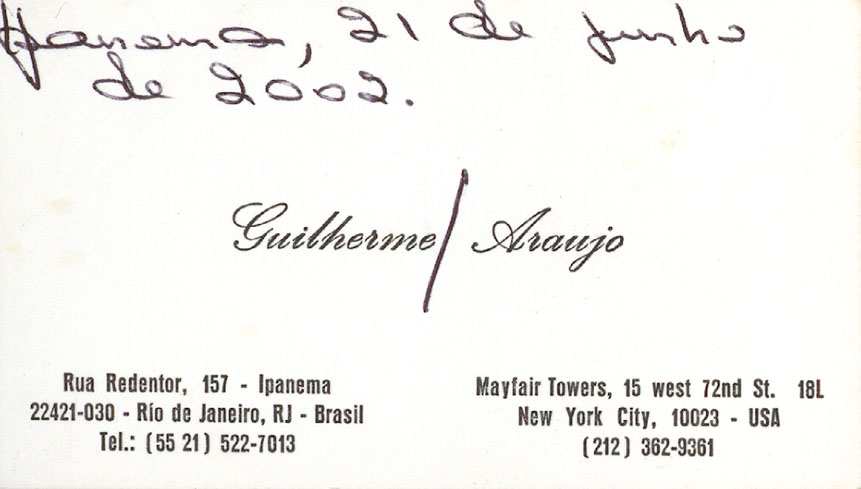 Ipanema, 21 de junho
de 2002.
Guilherme / Araujo
Rua Redentor, 157 - Ipanema
22421-030 - Rio de Janeiro, RJ - Brasil
Tel.: (55 21) 522-7013
Mayfair Towers, 15 west 72nd St. 18L
New York City, 10023 - USA
(212) 362-9361